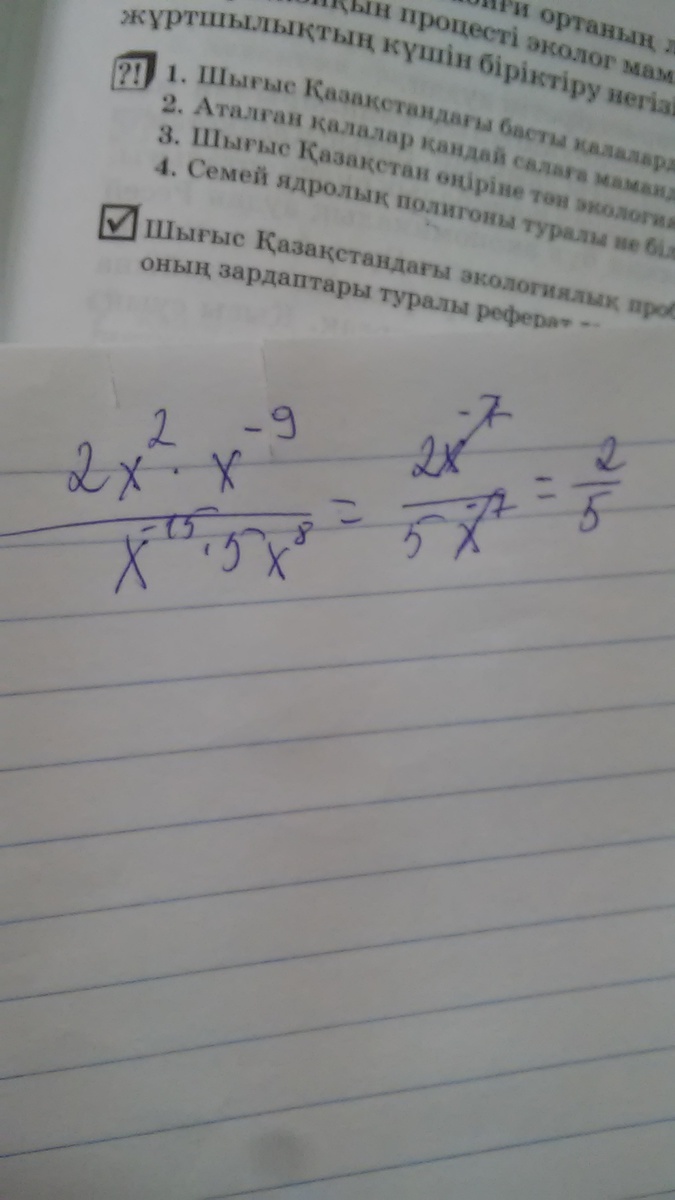 ортаның
процесті эколог
жұртшылықтың күшін біріктіру
?! 1. Шығыс Қазақстандағы басты
2. Аталған қалалар қандай салаға
3. Шығыс Қазақстан өңіріне тән
4. Семей ядролық полигоны туралы не
Шығыс Қазақстандағы экологиялық
оның зардаптары туралы реферат
2x² · x⁻⁹ / x⁻¹⁵ · 5x⁸ = 2x⁻⁷ / 5x⁻⁷ = 2/5